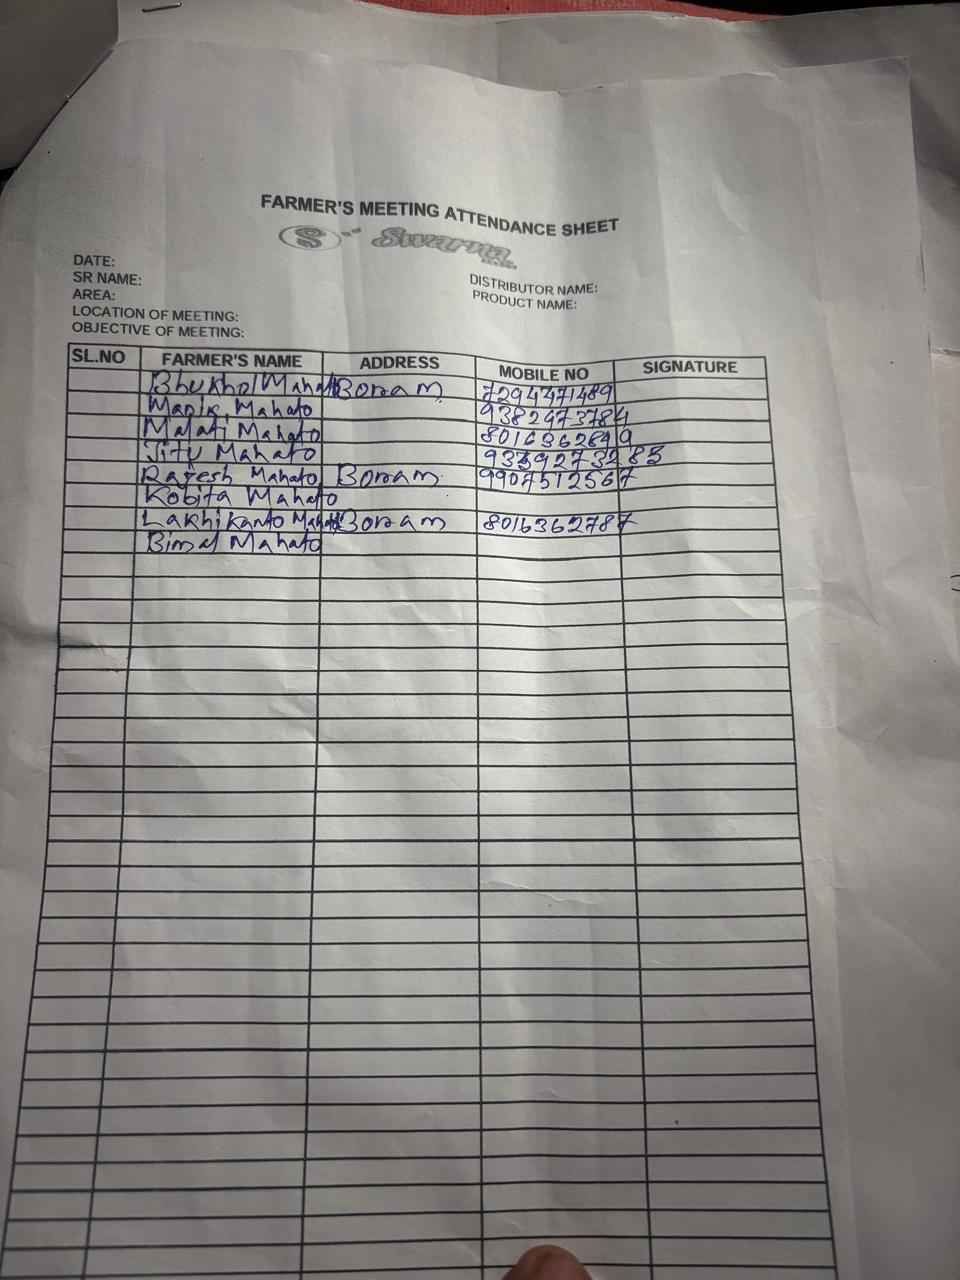 FARMER'S MEETING ATTENDANCE SHEET
S Swarna
DATE:
SR NAME:
AREA:
LOCATION OF MEETING:
OBJECTIVE OF MEETING:
DISTRIBUTOR NAME:
PRODUCT NAME:
SL.NO FARMER'S NAME ADDRESS MOBILE NO SIGNATURE
Bhukhol Mahato Boram 7294471489
Manik Mahato 9382473784
Malati Mahato 8016362849
Jitu Mahato
Rajesh Mahato Boram 9907512567
Kobita Mahato
Lakhikanto Mahato Boram 8016362787
Bimal Mahato